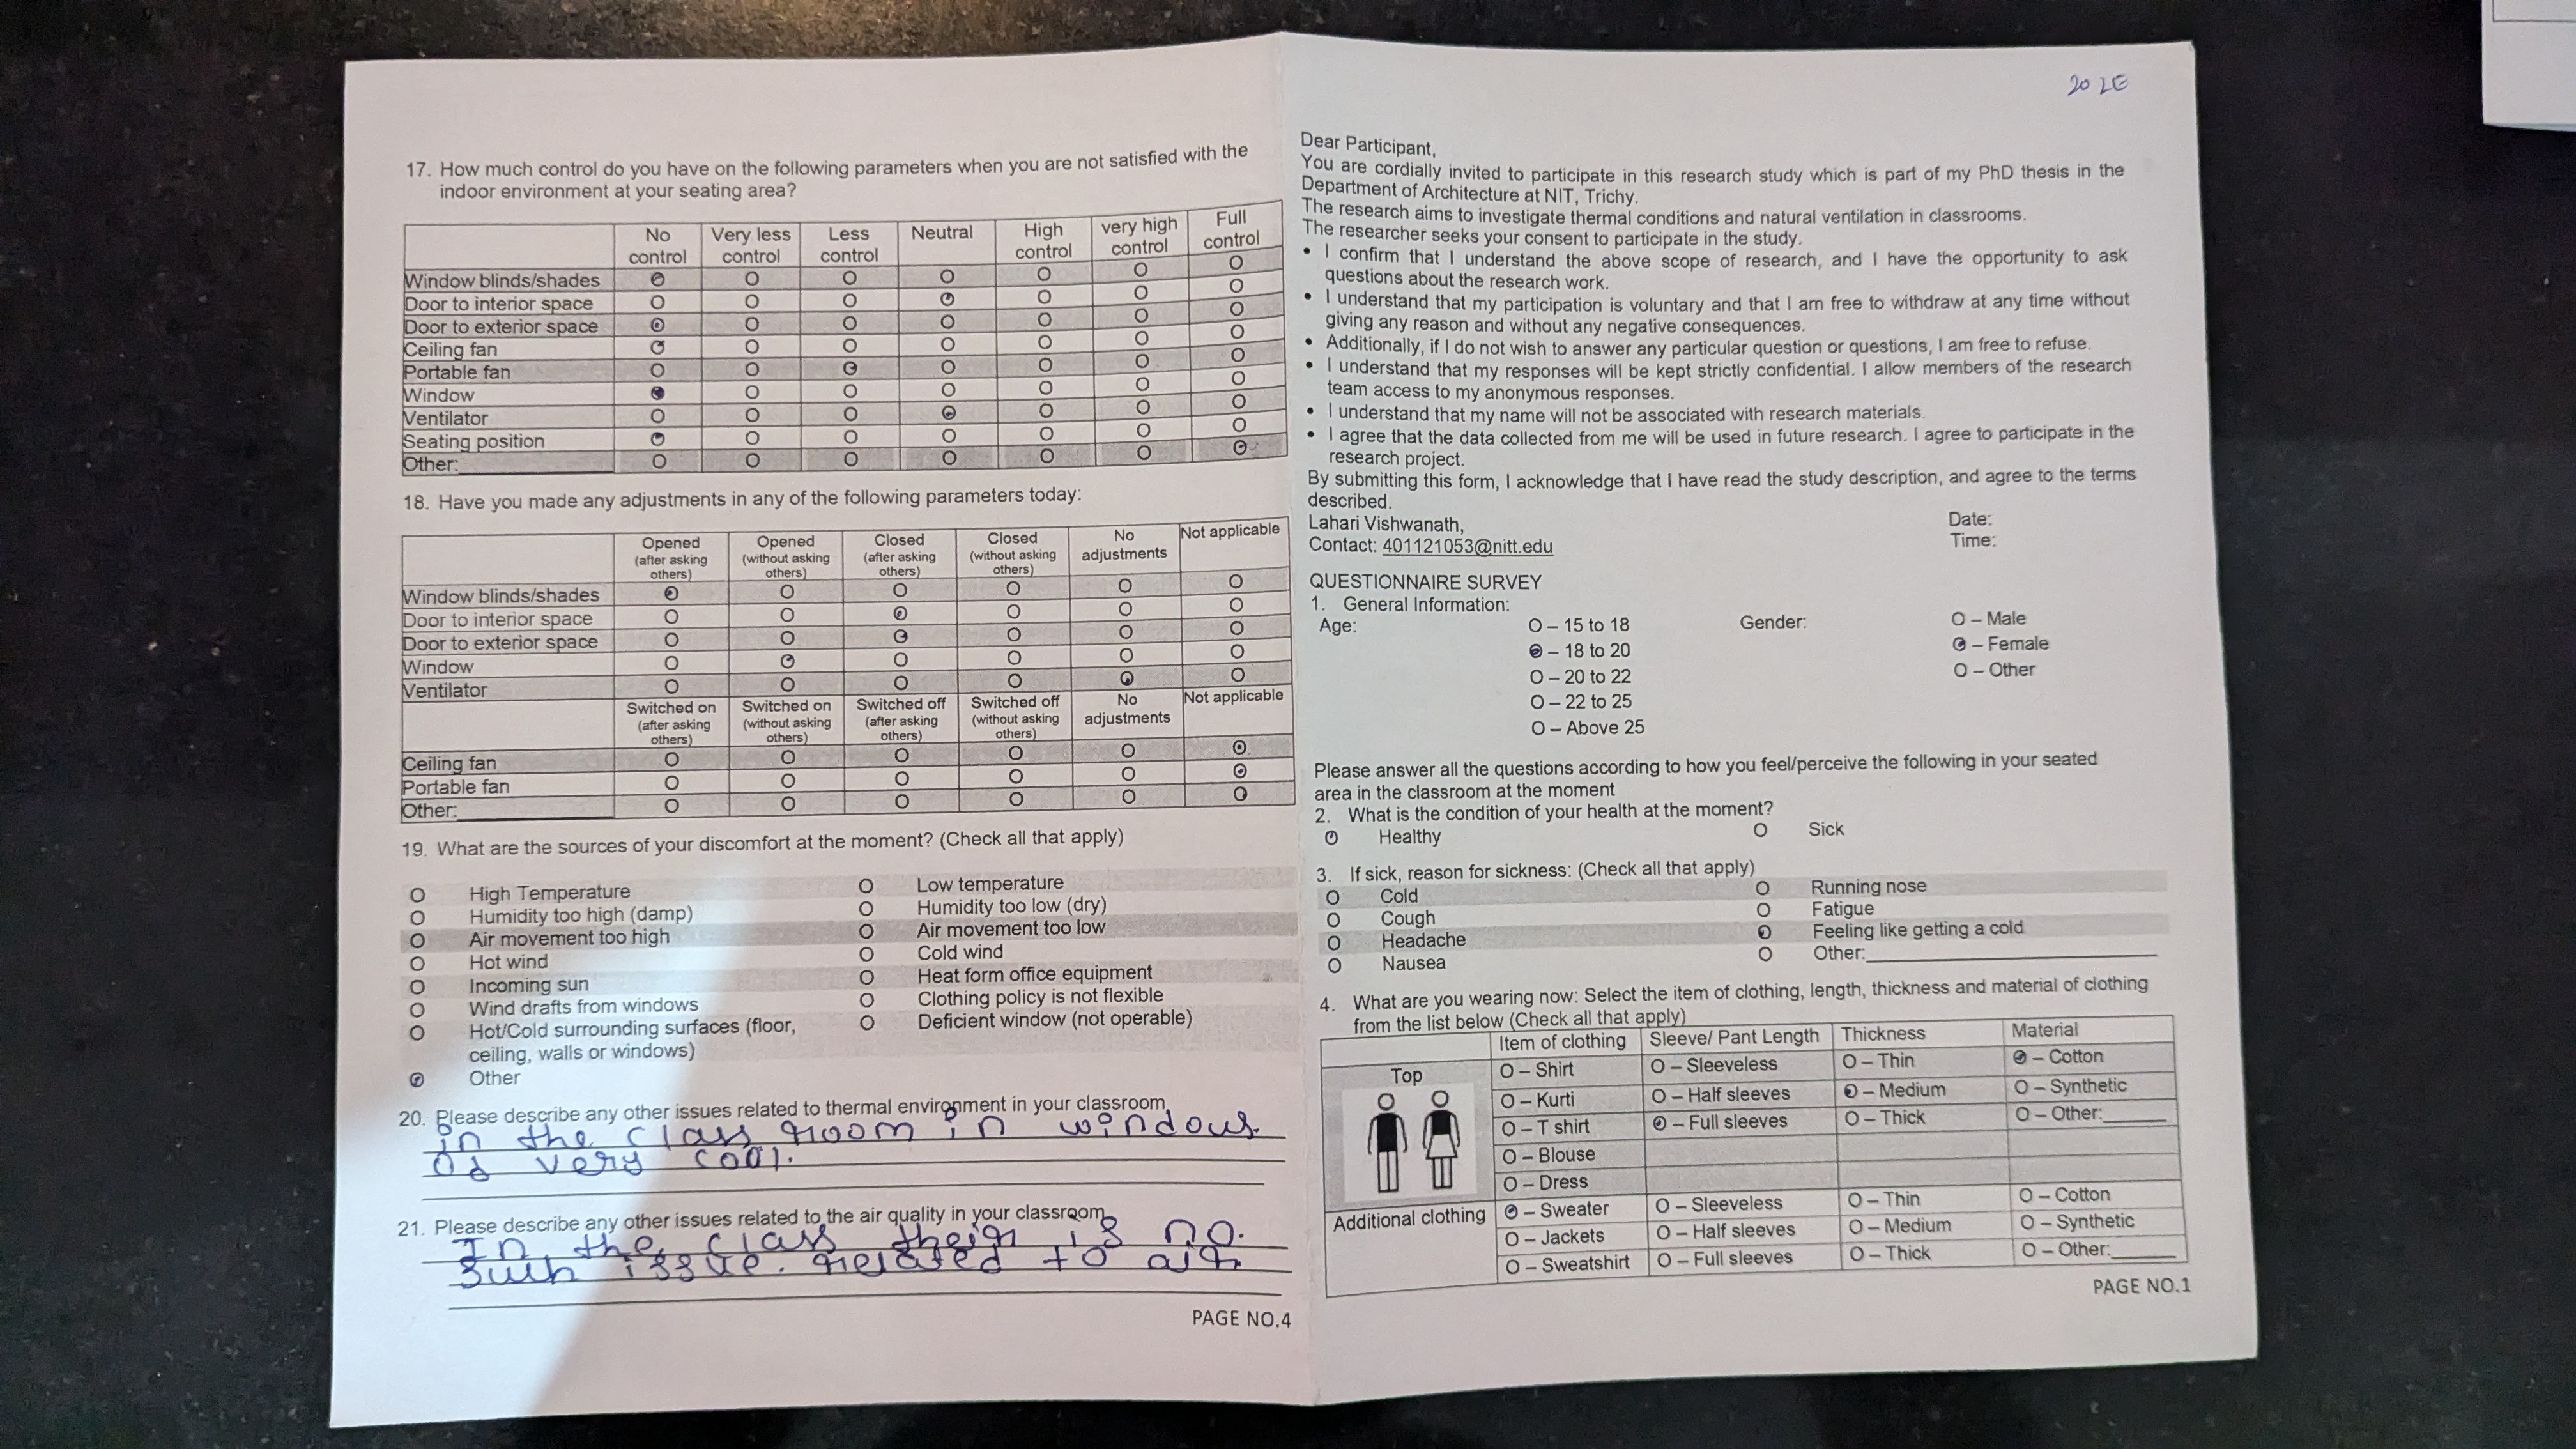 17. How much control do you have on the following parameters when you are not satisfied with the
indoor environment at your seating area?
No control | Very less control | Less control | Neutral | High control | very high control | Full control
Window blinds/shades
Door to interior space
Door to exterior space
Ceiling fan
Portable fan
Window
Ventilator
Seating position
Other:
18. Have you made any adjustments in any of the following parameters today:
Opened (after asking others) | Opened (without asking others) | Closed (after asking others) | Closed (without asking others) | No adjustments | Not applicable
Window blinds/shades
Door to interior space
Door to exterior space
Window
Ventilator
Switched on (after asking others) | Switched on (without asking others) | Switched off (after asking others) | Switched off (without asking others) | No adjustments | Not applicable
Ceiling fan
Portable fan
Other:
19. What are the sources of your discomfort at the moment? (Check all that apply)
O High Temperature O Low temperature
O Humidity too high (damp) O Humidity too low (dry)
O Air movement too high O Air movement too low
O Hot wind O Cold wind
O Incoming sun O Heat form office equipment
O Wind drafts from windows O Clothing policy is not flexible
O Hot/Cold surrounding surfaces (floor, O Deficient window (not operable)
ceiling, walls or windows)
O Other
20. Please describe any other issues related to thermal environment in your classroom
in the class room in windows
very cool.
21. Please describe any other issues related to the air quality in your classroom
In the class their is no.
such issue. related to air.
PAGE NO.4
20 LE
Dear Participant,
You are cordially invited to participate in this research study which is part of my PhD thesis in the
Department of Architecture at NIT, Trichy.
The research aims to investigate thermal conditions and natural ventilation in classrooms.
The researcher seeks your consent to participate in the study.
• I confirm that I understand the above scope of research, and I have the opportunity to ask
questions about the research work.
• I understand that my participation is voluntary and that I am free to withdraw at any time without
giving any reason and without any negative consequences.
• Additionally, if I do not wish to answer any particular question or questions, I am free to refuse.
• I understand that my responses will be kept strictly confidential. I allow members of the research
team access to my anonymous responses.
• I understand that my name will not be associated with research materials.
• I agree that the data collected from me will be used in future research. I agree to participate in the
research project.
By submitting this form, I acknowledge that I have read the study description, and agree to the terms
described.
Lahari Vishwanath, Date:
Contact: 401121053@nitt.edu Time:
QUESTIONNAIRE SURVEY
1. General Information:
Age: O – 15 to 18 Gender: O – Male
O – 18 to 20 O – Female
O – 20 to 22 O – Other
O – 22 to 25
O – Above 25
Please answer all the questions according to how you feel/perceive the following in your seated
area in the classroom at the moment
2. What is the condition of your health at the moment?
O Healthy O Sick
3. If sick, reason for sickness: (Check all that apply)
O Cold O Running nose
O Cough O Fatigue
O Headache O Feeling like getting a cold
O Nausea O Other:
4. What are you wearing now: Select the item of clothing, length, thickness and material of clothing
from the list below (Check all that apply)
Item of clothing | Sleeve/ Pant Length | Thickness | Material
Top | O – Shirt | O – Sleeveless | O – Thin | O – Cotton
O – Kurti | O – Half sleeves | O – Medium | O – Synthetic
O – T shirt | O – Full sleeves | O – Thick | O – Other:
O – Blouse
O – Dress
Additional clothing | O – Sweater | O – Sleeveless | O – Thin | O – Cotton
O – Jackets | O – Half sleeves | O – Medium | O – Synthetic
O – Sweatshirt | O – Full sleeves | O – Thick | O – Other:
PAGE NO.1